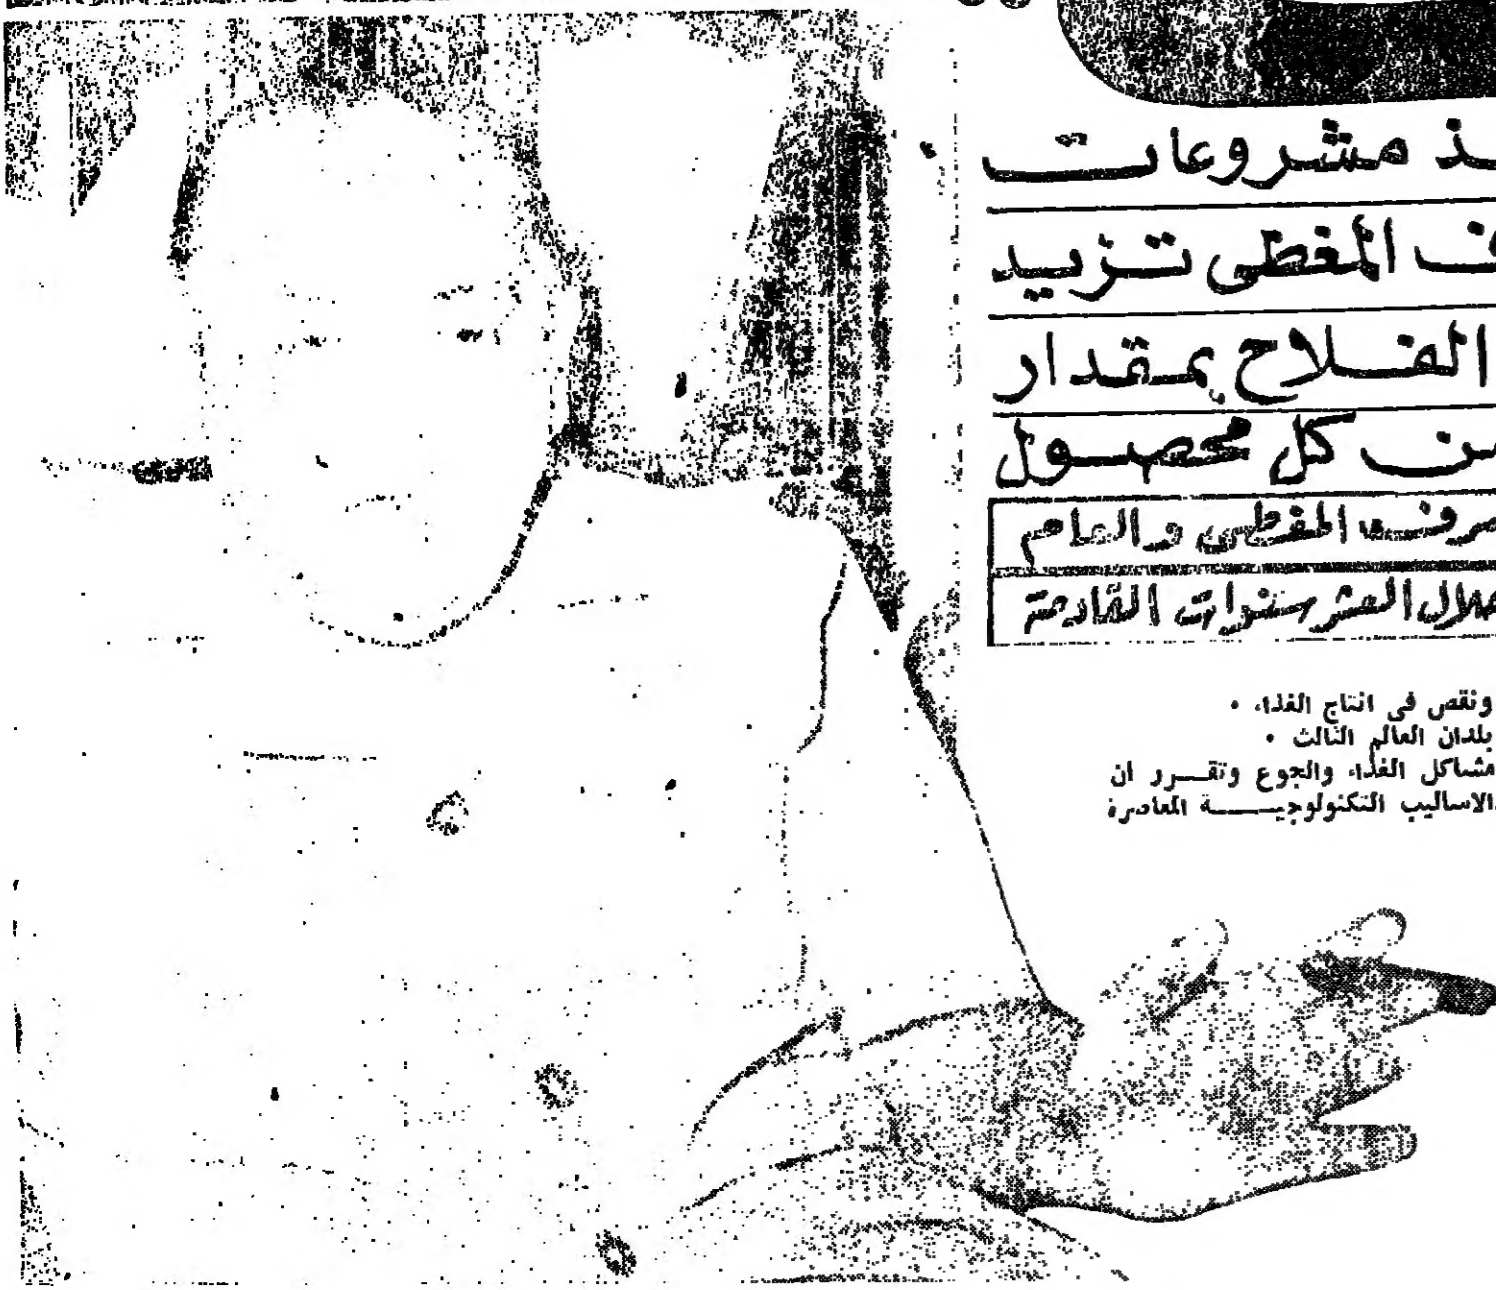 ـذ مشروعات
ـف المغطى تـزيـد
الفـلاح بمـقـدار
ـن كل محصـول
ـرف المغطى والعام
خلال العشر سنوات القادمة
ونقص فى انتاج الغذاء •
بلدان العالم الثالث •
مشاكل الغذاء والجوع وتقــرر ان
الاساليب التكنولوجيـــــة المعاصرة